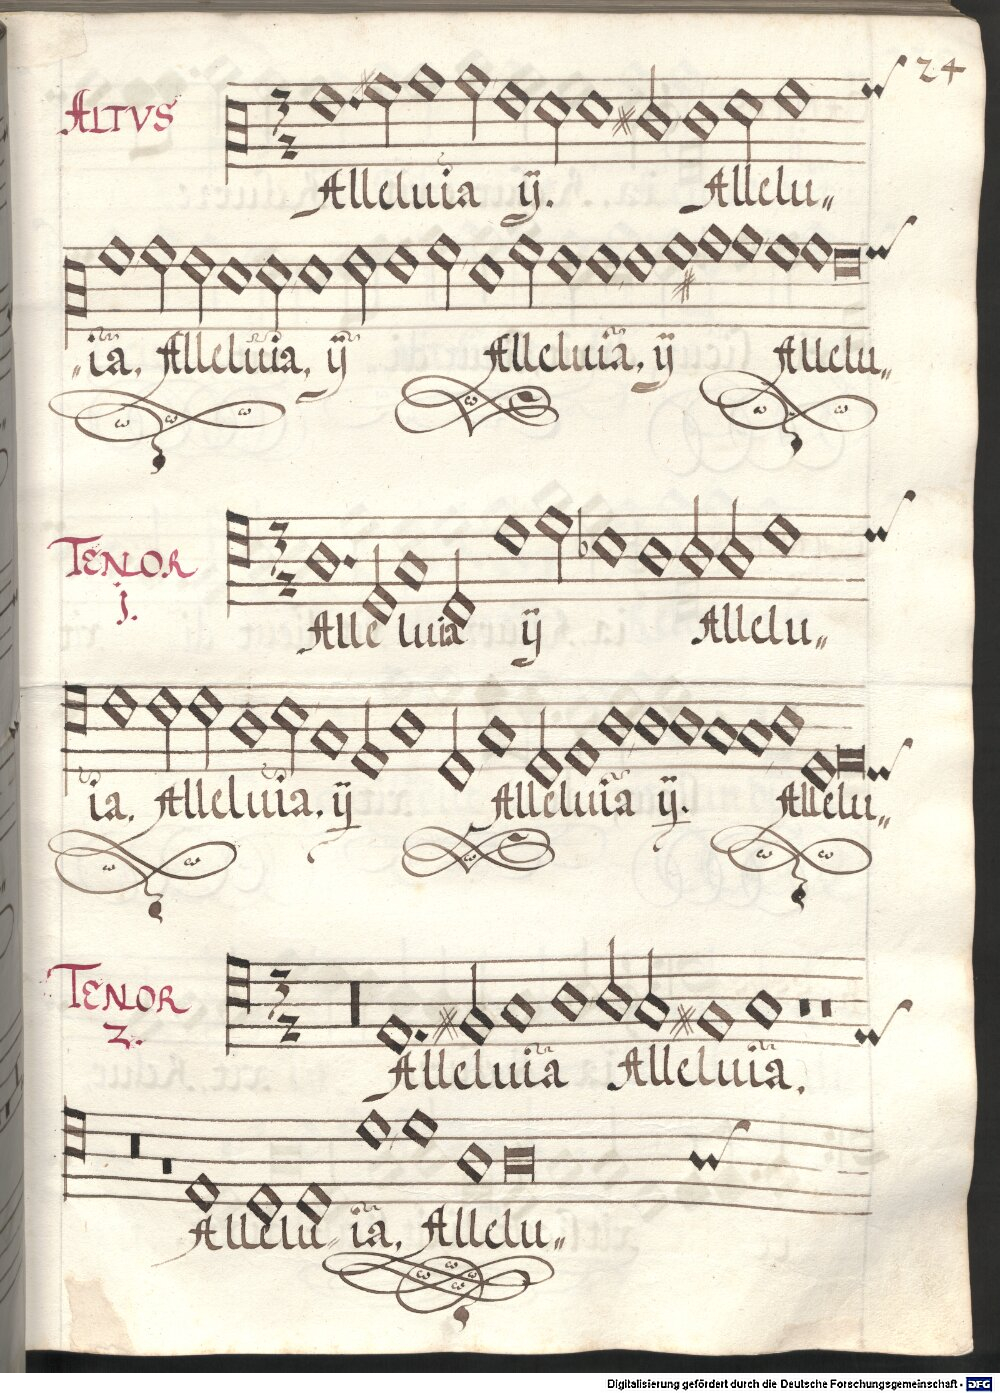 24
ALTVS
3 2
Alleluia ij. Allelu„
„ia, Alleluia, ij Alleluia, ij Allelu„
TENOR
3 2
j.
Alle luia ij Allelu„
ia, Alleluia, ij Alleluia ij. Allelu„
TENOR
3 2
2.
Alleluia Alleluia,
Allelu„ ia, Allelu„
Digitalisierung gefördert durch die Deutsche Forschungsgemeinschaft - DFG